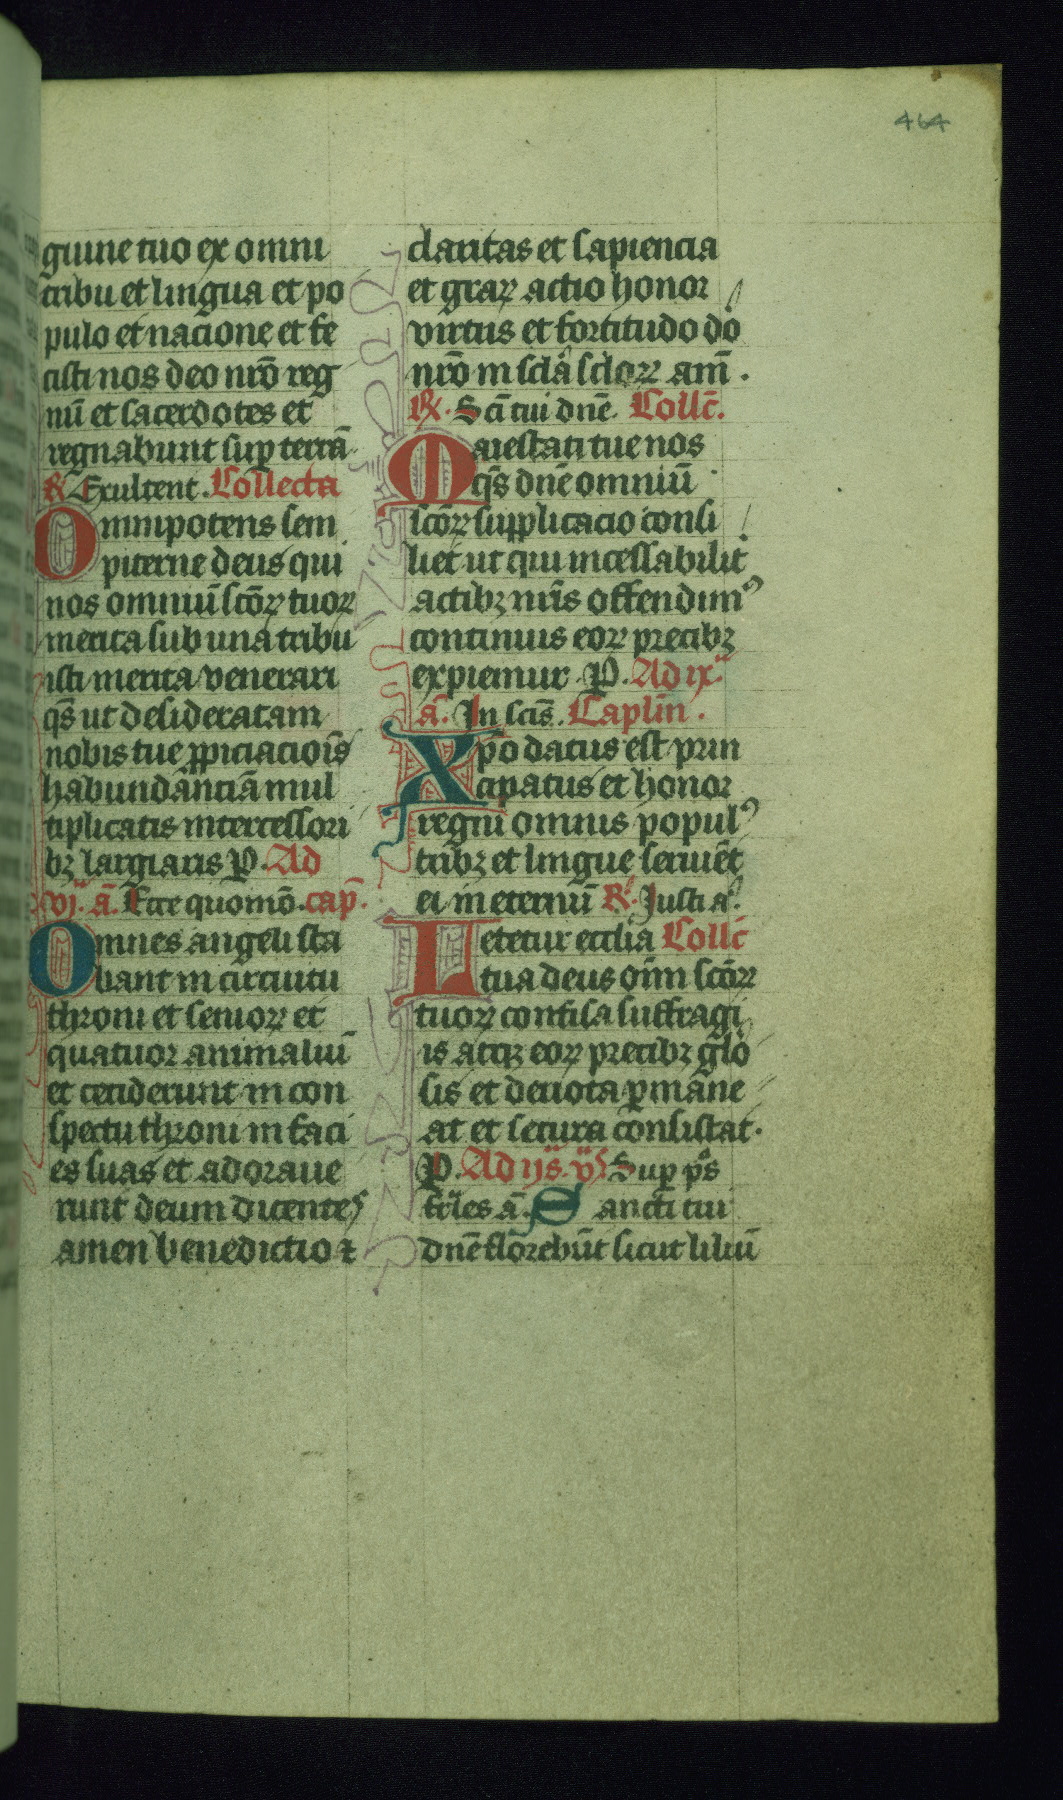 464
guine tuo ex omni
tribu et lingua et po
pulo et nacione et fe
cisti nos deo nr̄o reg
nū et sacerdotes et
regnabunt sup̱ terrā
R̄. Exultent. Collecta
Omnipotens sem
piterne deus qui
nos omniū sc̄oꝝ tuoꝝ
merita sub una tribu
isti merita venerari
qs̄ ut desideratam
nobis tue ꝓpiciaciōis
habundanciā mul
tiplicatis intercessori
bꝫ largiaris P. Ad
vj. ā. Ecce quomō. cap̄.
Omnes angeli sta
bant in circuitu
throni et senioꝝ et
quatuor animaliū
et ceciderunt in con
spectu throni in faci
es suas et adoraue
runt deum dicentes
amen benedictio ⁊
claritas et sapiencia
et gr̄aꝝ actio honor
virtus et fortitudo dō
nr̄o in scl̄a scl̄oꝝ am̄.
R̄. Sc̄i tui dn̄e. Collc̄.
Maiestati tue nos
qs̄ dn̄e omniū
sc̄oꝝ supplicacio consi
liet ut qui incessabilit̄
actibꝫ nr̄is offendimꝰ
continuis eoꝝ precibꝫ
expiemur. P. Ad ix.
ā. In sc̄is. Caplm̄.
Xpō datus est prin
cipatus et honor
regnū omnis populꝰ
tribꝫ et lingue seruiēt
ei in eternū R̄. Justi a.
Letetur ecc̄lia Collc̄
tua deus om̄ sc̄oꝝ
tuoꝝ confisa suffragi
is atqꝫ eoꝝ precibꝫ gl̄o
sis et deuota ꝑmane
at et secura consistat.
P. Ad ijs. vs̄ Sup̱ ps̄
fr̄les ā. Sancti tui
dn̄e florebūt sicut liliū